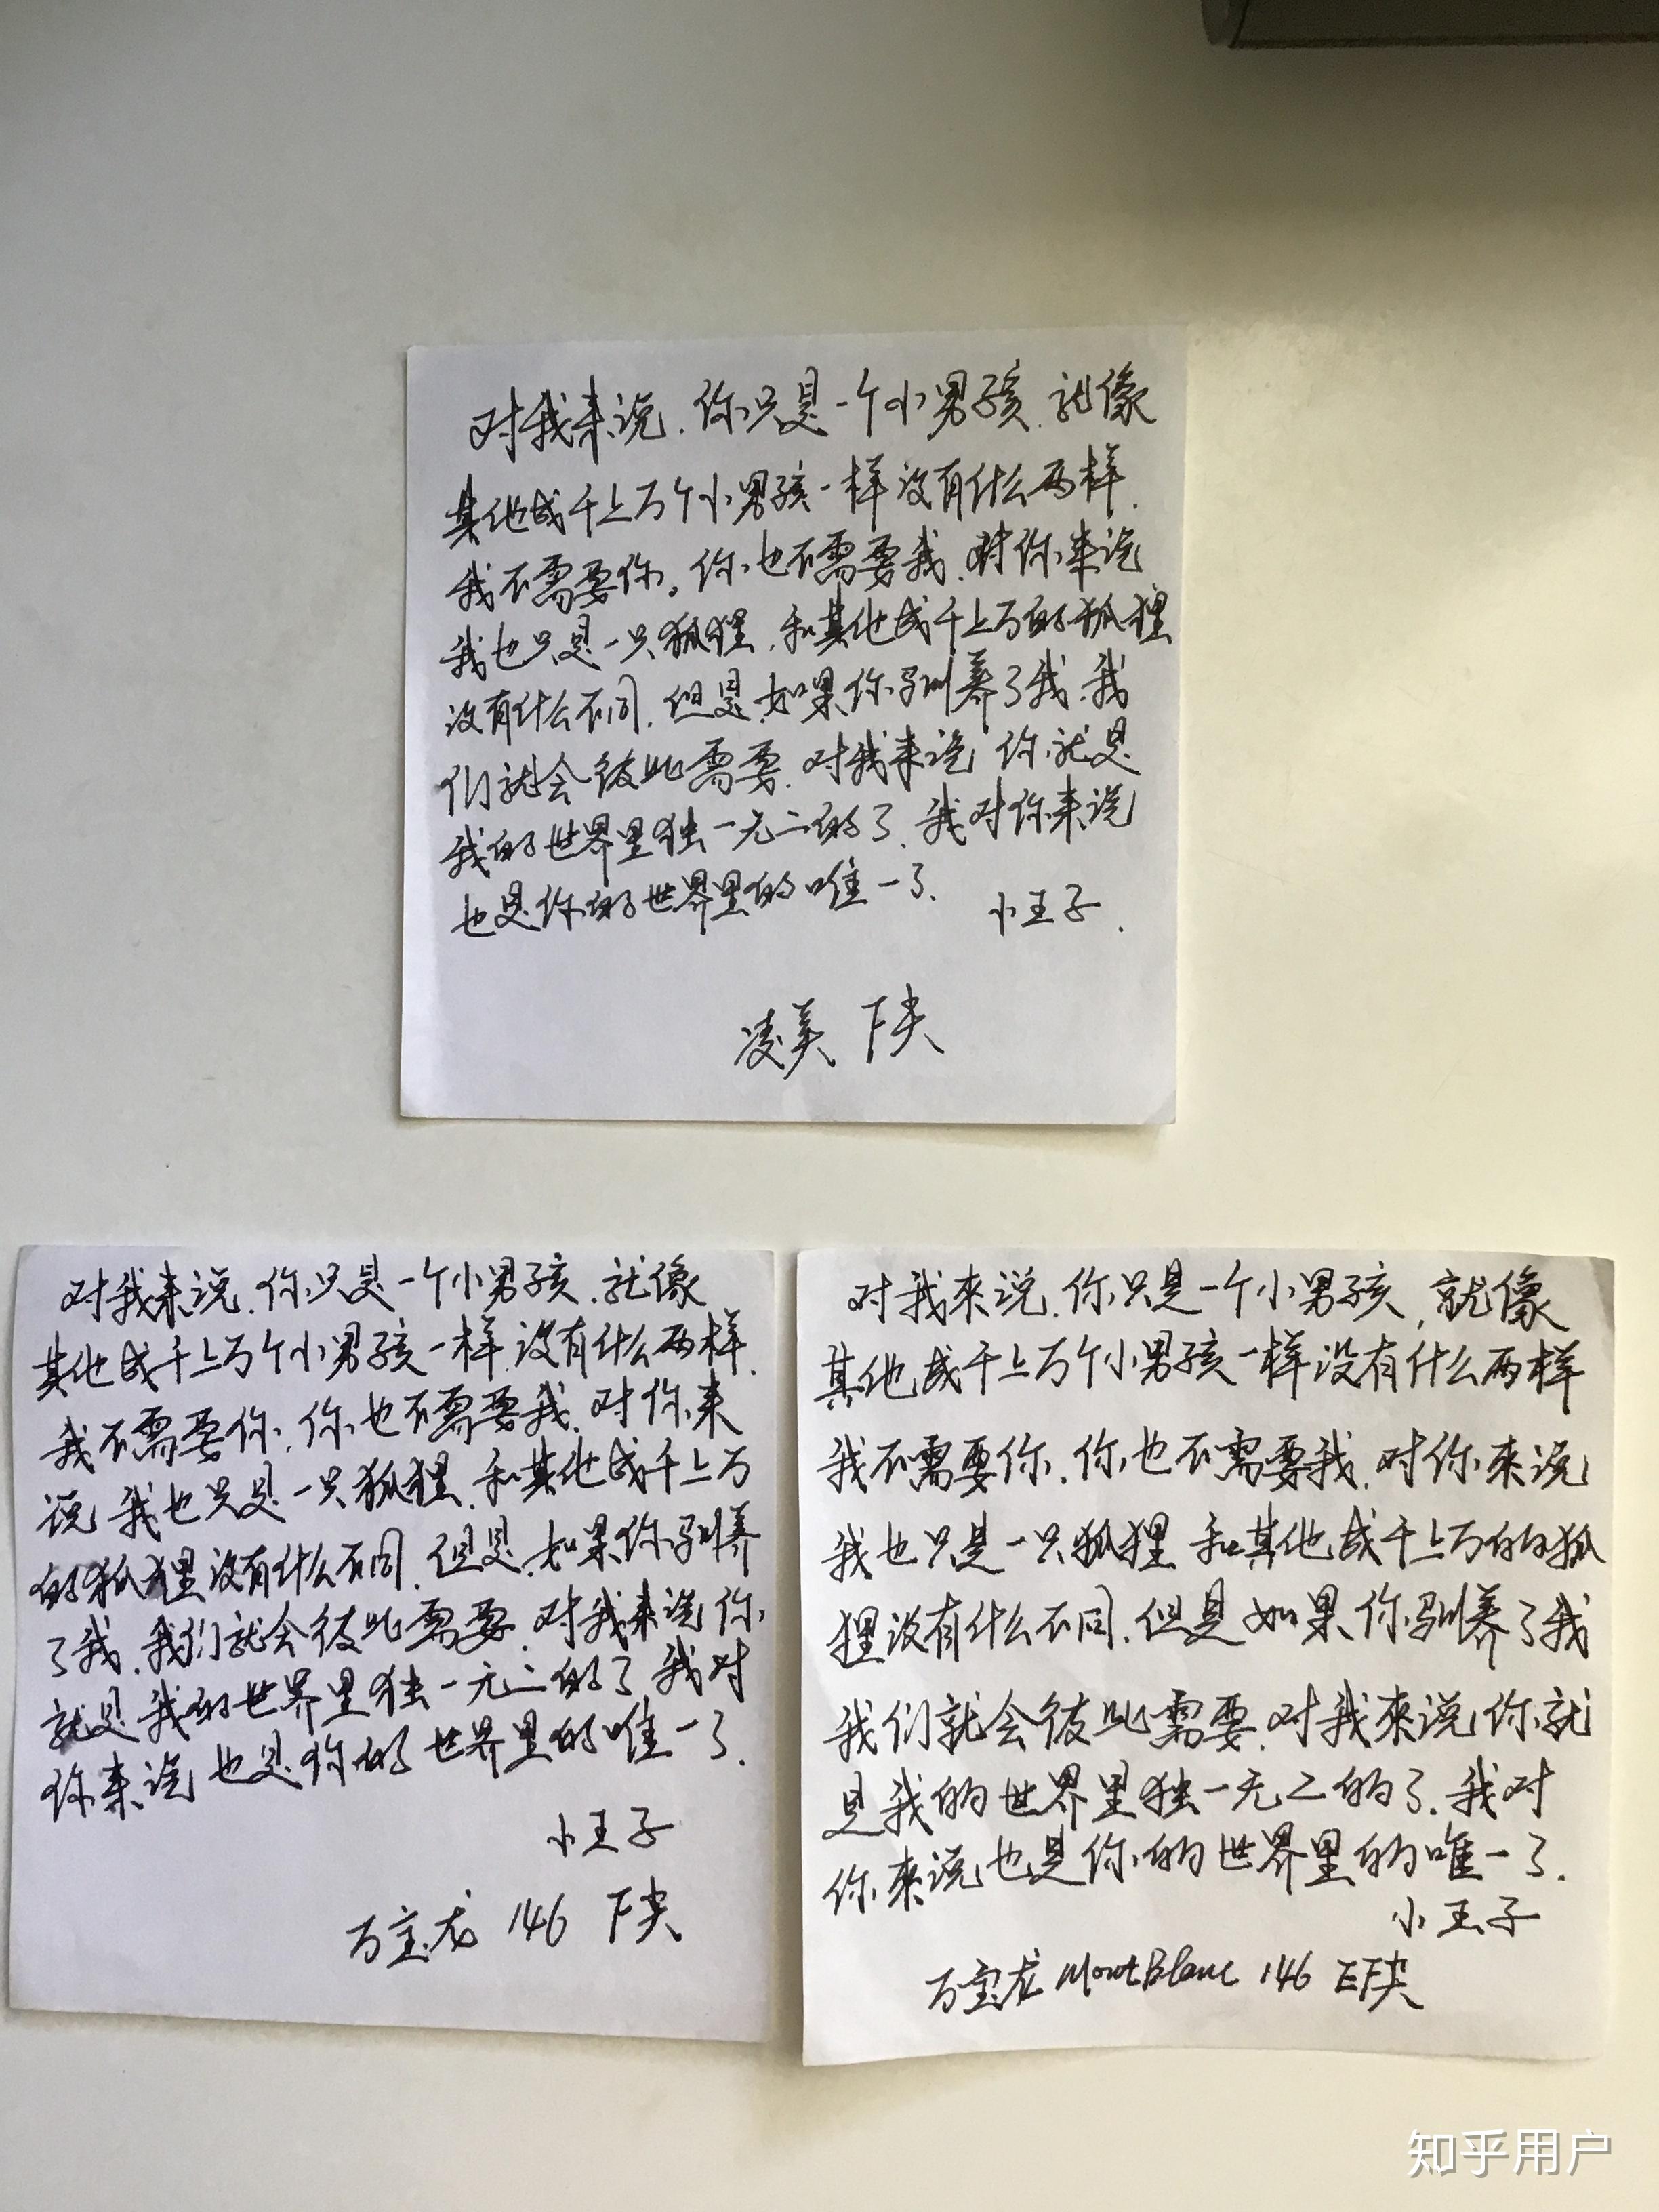 对我来说.你只是一个小男孩.就像
其他成千上万个小男孩一样没有什么两样.
我不需要你。你也不需要我.对你来说
我也只是一只狐狸.和其他成千上万的狐狸
没有什么不同.但是.如果你驯养了我.我
们就会彼此需要.对我来说 你就是
我的世界里独一无二的了.我对你来说
也是你的世界里的唯一了.
小王子.
凌美 F尖
对我来说.你只是一个小男孩.就像
其他成千上万个小男孩一样.没有什么两样.
我不需要你.你也不需要我.对你来
说 我也只是一只狐狸.和其他成千上万
的狐狸没有什么不同.但是.如果你驯养
了我.我们就会彼此需要.对我来说你
就是我的世界里独一无二的了 我对
你来说 也是你的世界里的唯一了.
小王子
万宝龙 146 F尖
对我来说.你只是一个小男孩,就像
其他成千上万个小男孩一样没有什么两样
我不需要你.你也不需要我.对你来说
我也只是一只狐狸 和其他成千上万的狐
狸没有什么不同.但是如果你驯养了我
我们就会彼此需要.对我来说你就
是我的世界里独一无二的了.我对
你来说也是你的世界里的唯一了.
小王子
万宝龙 MontBlanc 146 EF尖
知乎用户